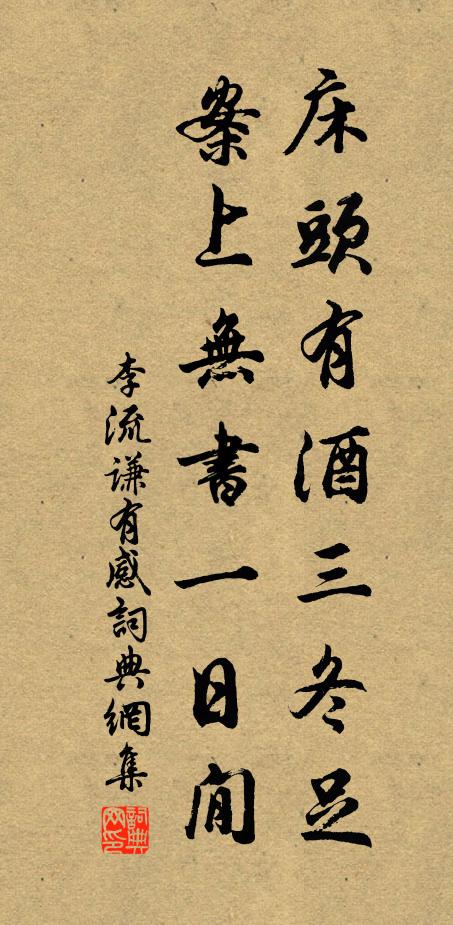 床頭有酒三冬足
案上無書一日閑
李流謙有感詞典網集
詞典网印